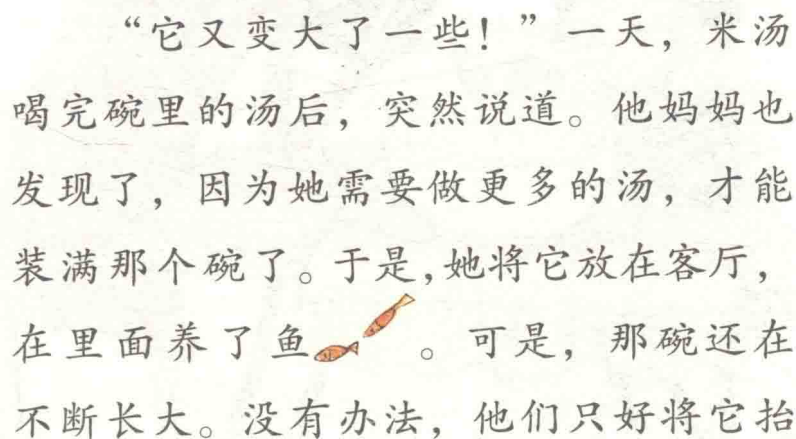 “它又变大了一些！”一天，米汤
喝完碗里的汤后，突然说道。他妈妈也
发现了，因为她需要做更多的汤，才能
装满那个碗了。于是，她将它放在客厅，
在里面养了鱼。可是，那碗还在
不断长大。没有办法，他们只好将它抬